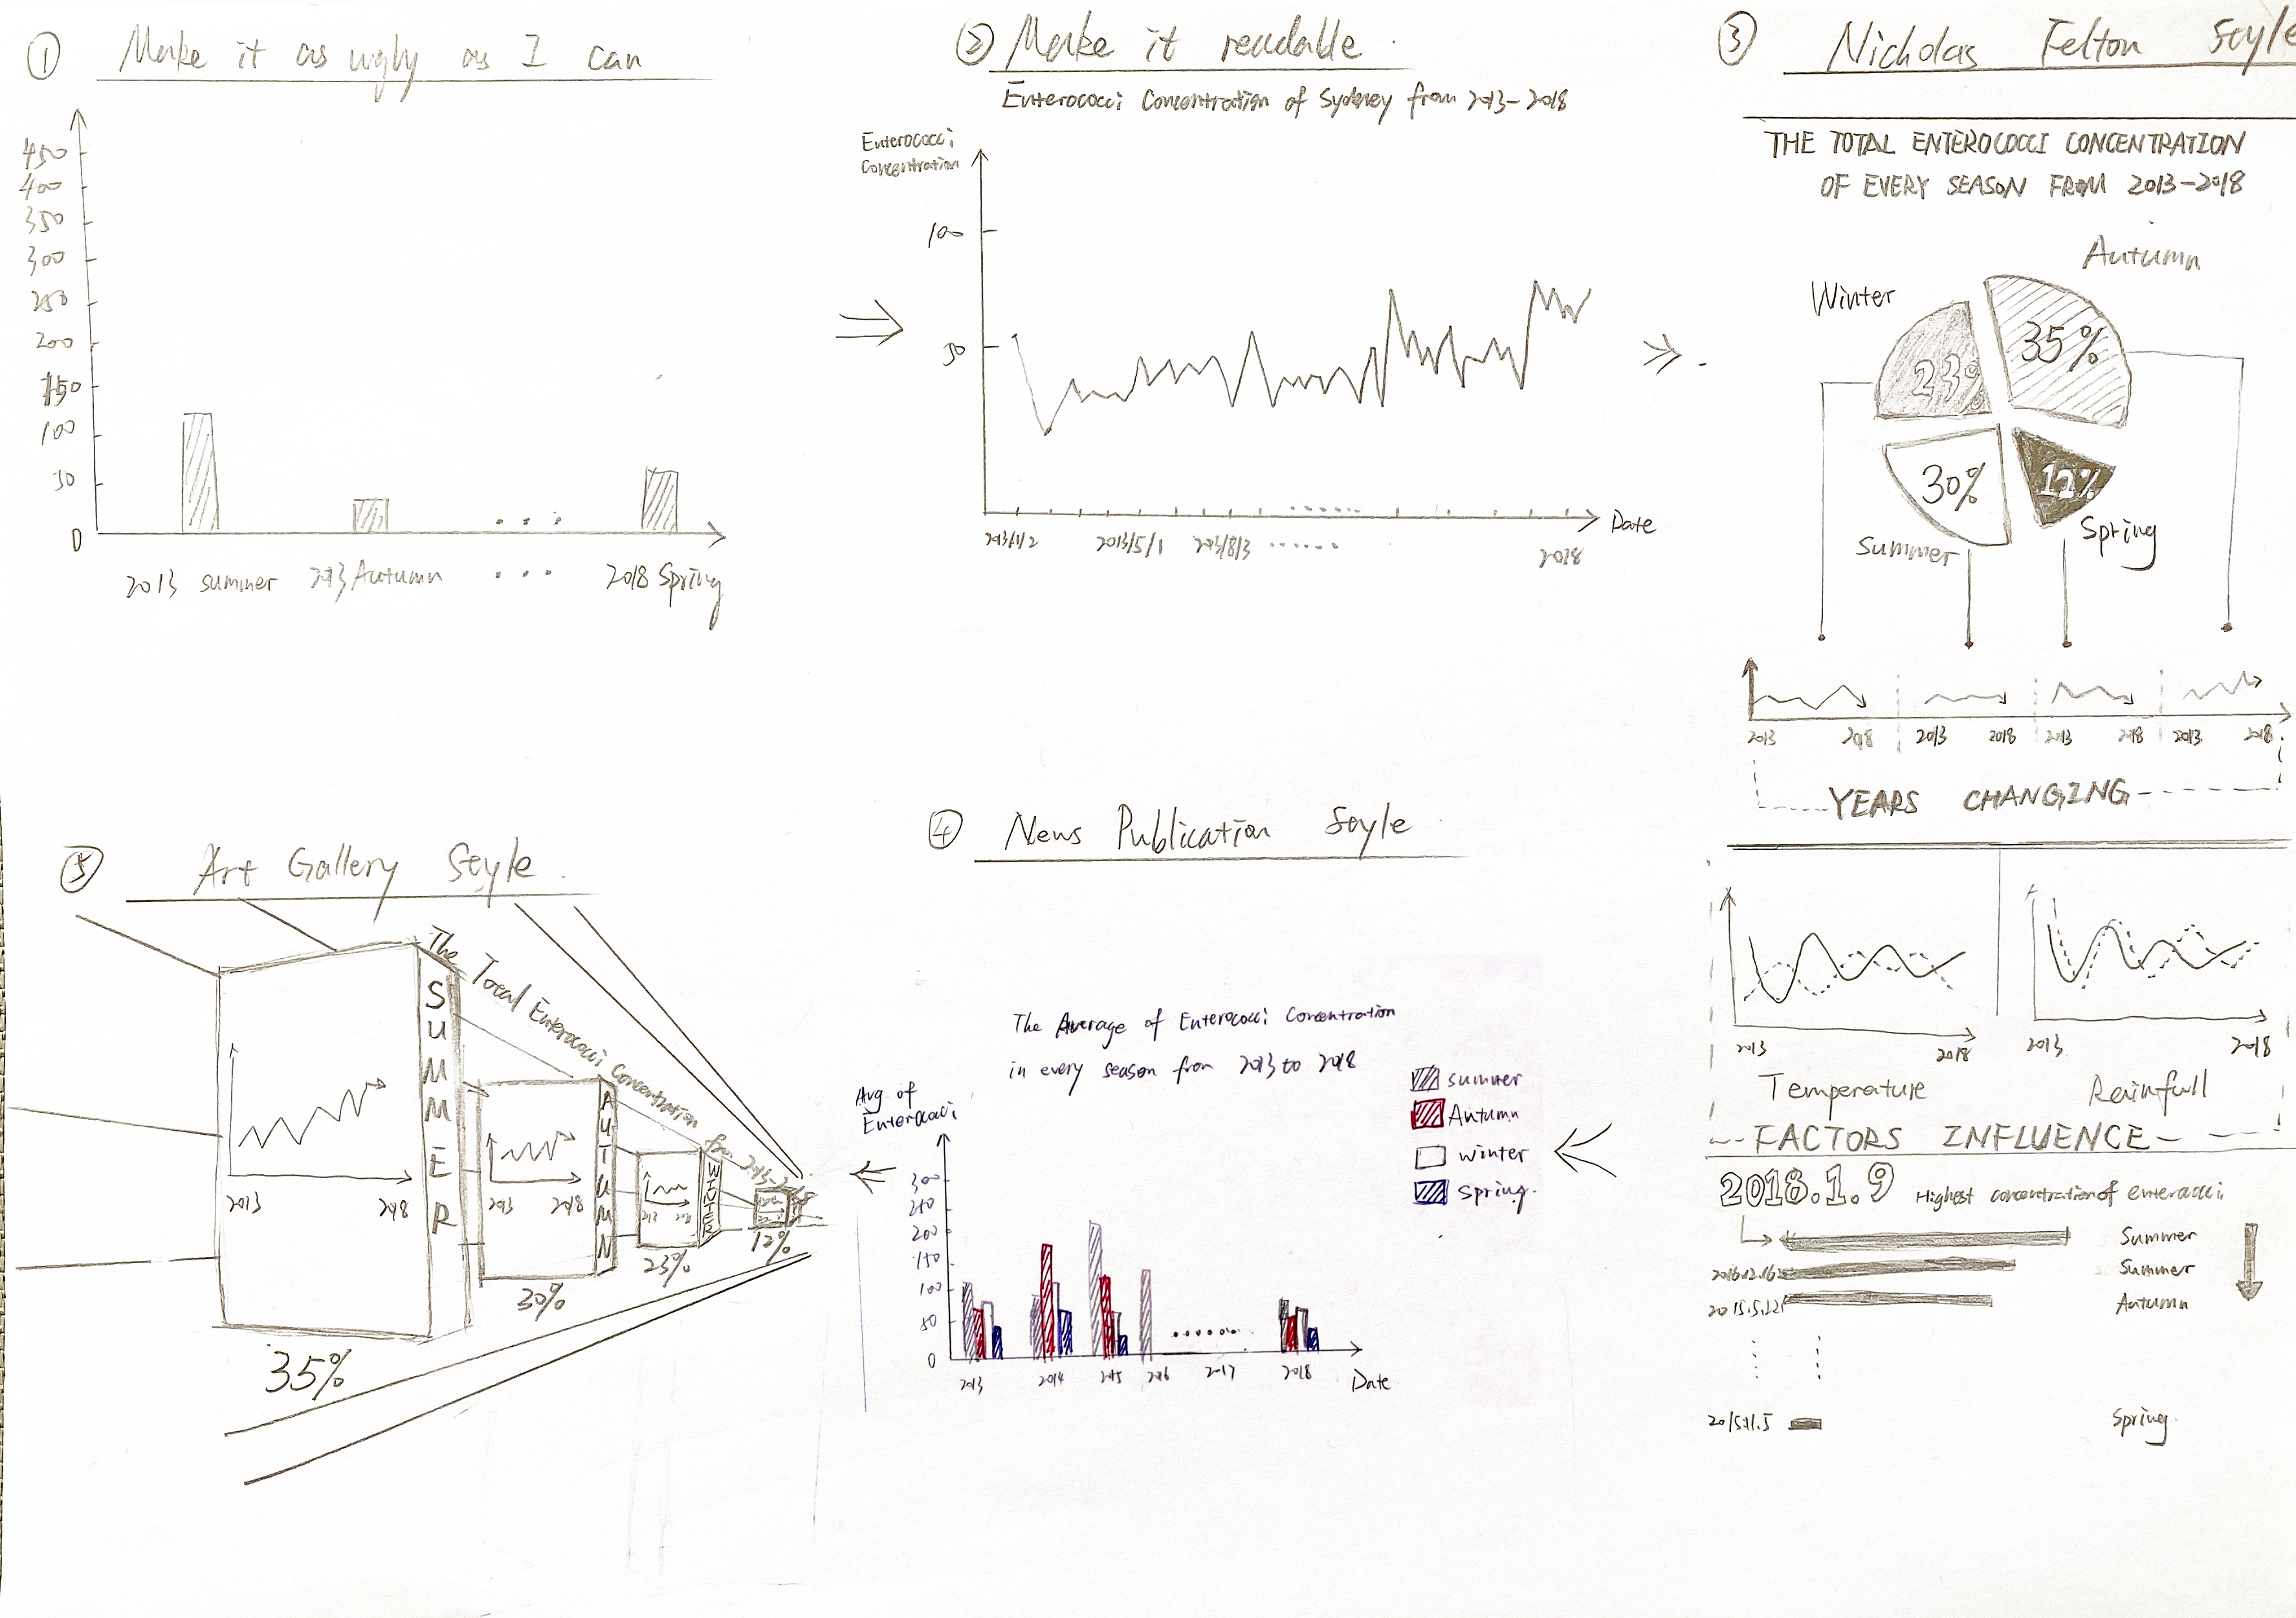 ① Make it as ugly as I can
450
400
350
300
250
200
150
100
50
0
2013 summer
2013 Autumn
...
2018 Spring
② Make it readable.
Enterococci Concentration of Sydney from 2013-2018
Enterococci
Concentration
100
50
2013/1/2
2013/5/1
2013/8/3
......
2018
Date
③ Nicholas Felton Style
THE TOTAL ENTEROCOCCI CONCENTRATION
OF EVERY SEASON FROM 2013-2018
Autumn
Winter
35%
23%
30%
12%
Summer
Spring
2013 2018 2013 2018 2013 2018 2013 2018
YEARS CHANGING
2013 2018
2013 2018
Temperature
Rainfall
FACTORS INFLUENCE
2018.1.9 Highest concentration of enterococci
Summer
2016.12.16 Summer
2015.5.12 Autumn
2015.11.5 Spring.
④ News Publication Style
The Average of Enterococci Concentration
in every season from 2013 to 2018
summer
Autumn
winter
Spring.
Avg of
Enterococci
300
250
200
150
100
50
0
2013 2014 2015 2016 2017 2018
Date
⑤ Art Gallery Style.
The Total Enterococci Concentration from 2013-2018
SUMMER
2013 2018
35%
AUTUMN
2013 2018
30%
WINTER
2013 2018
23%
12%